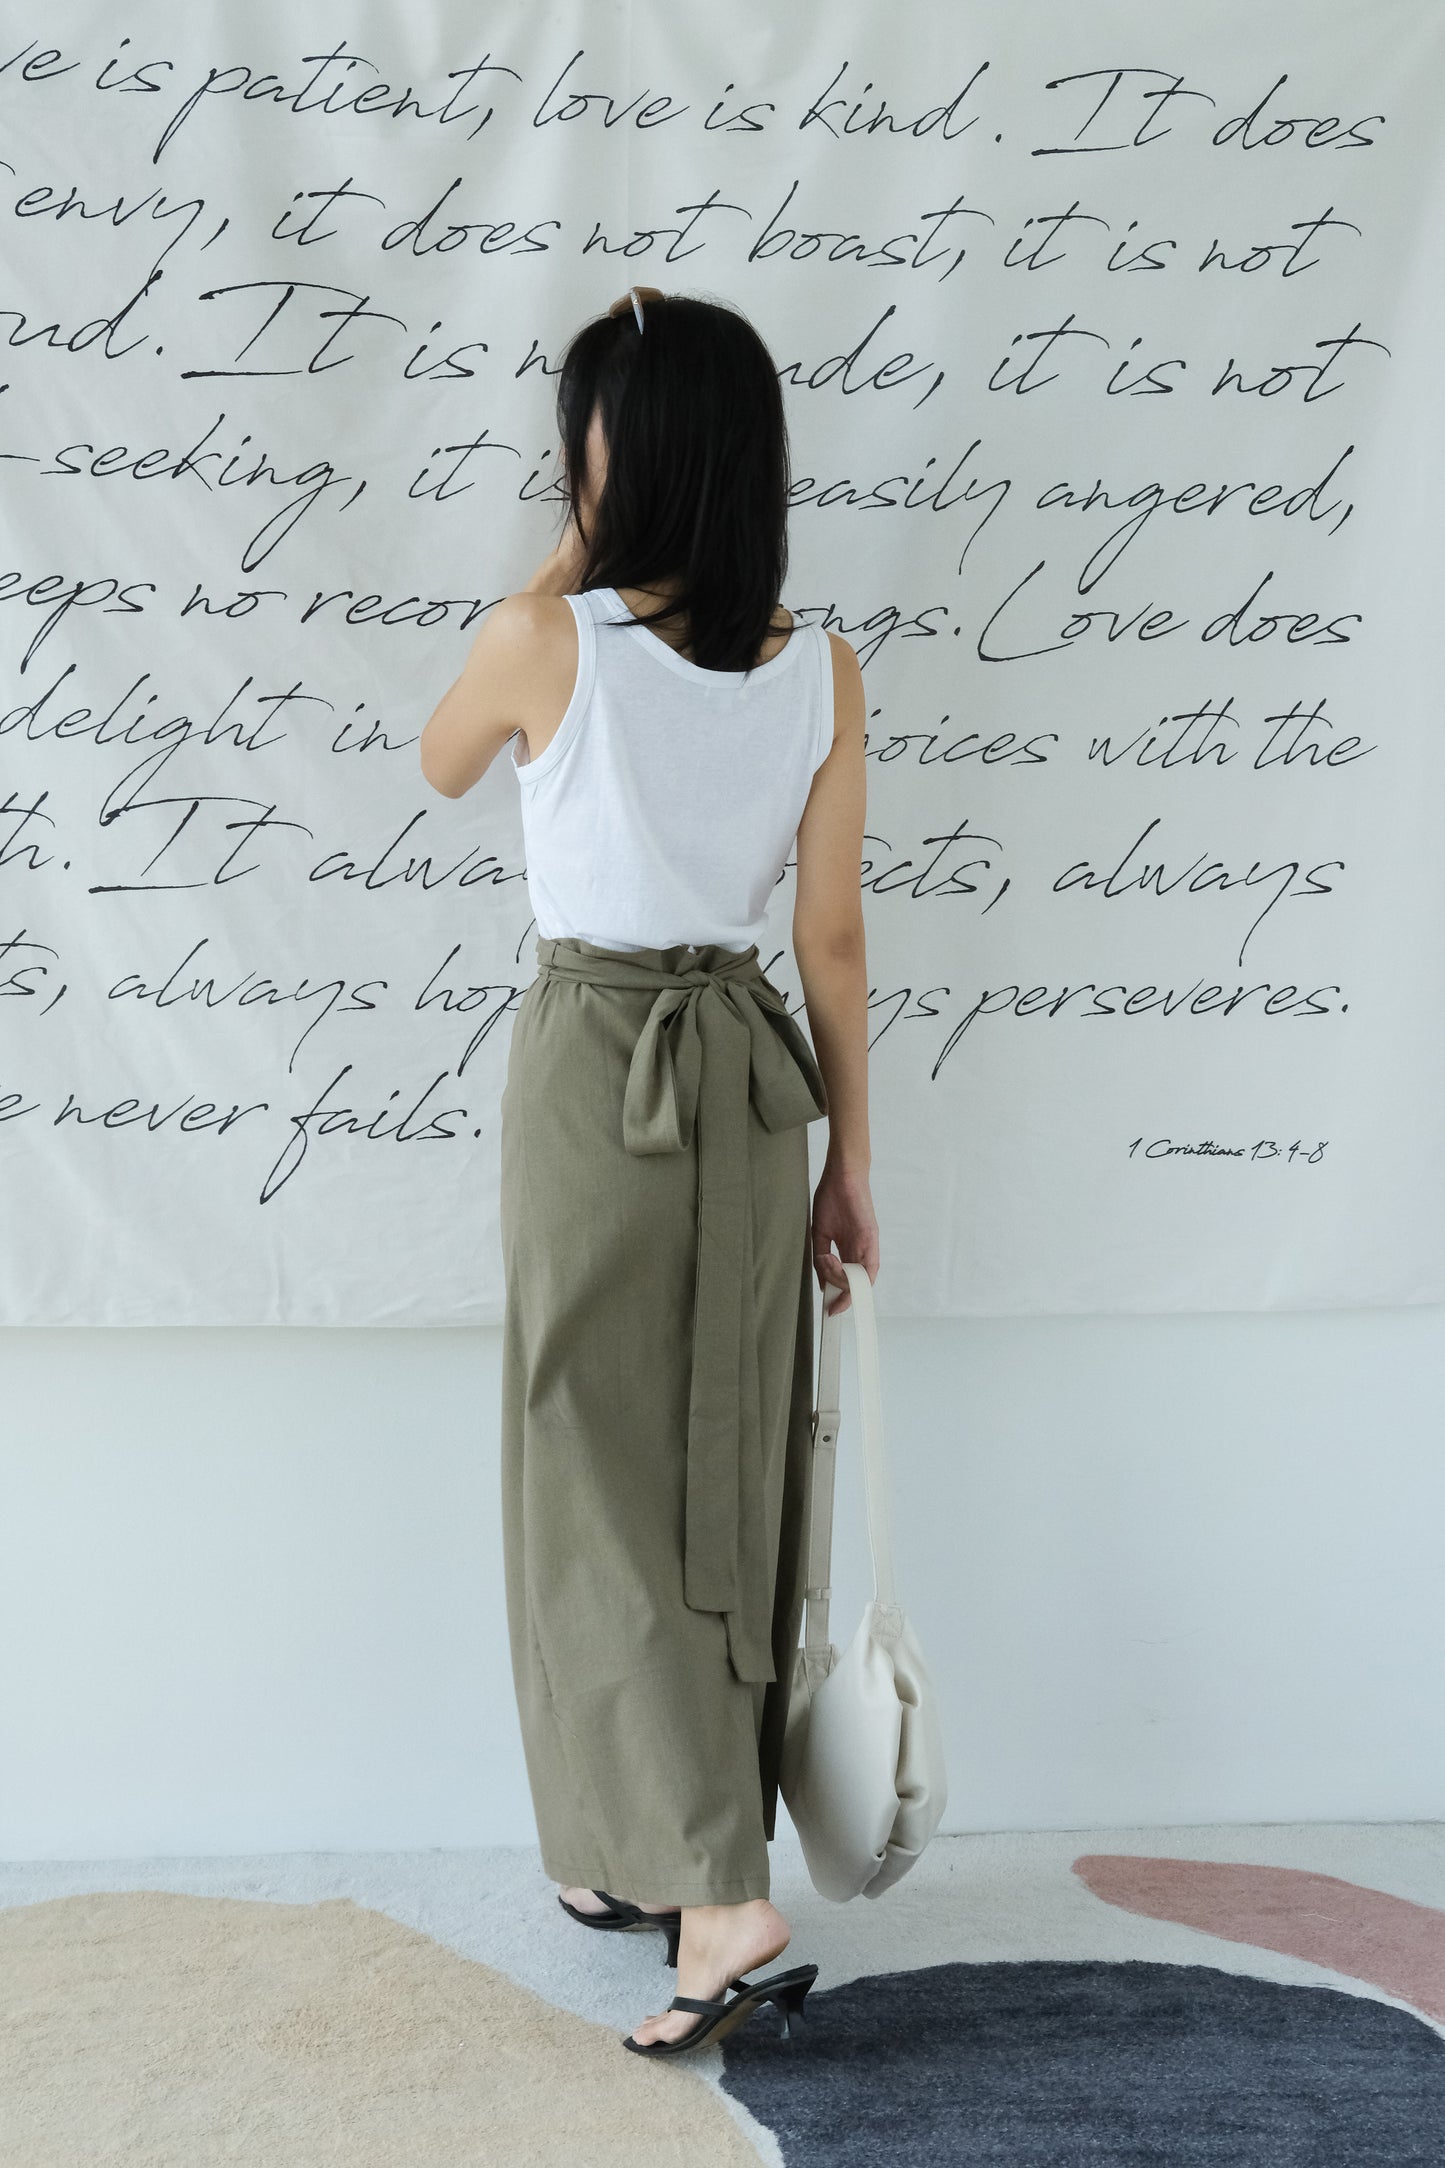 is patient, love is kind. It does
envy, it does not boast, it is not
. It is it is not
-seeking, it is easily angered,
no Love does
delight in with the
. It always
, always perseveres.
never fails.
1 Corinthians 13:4-8